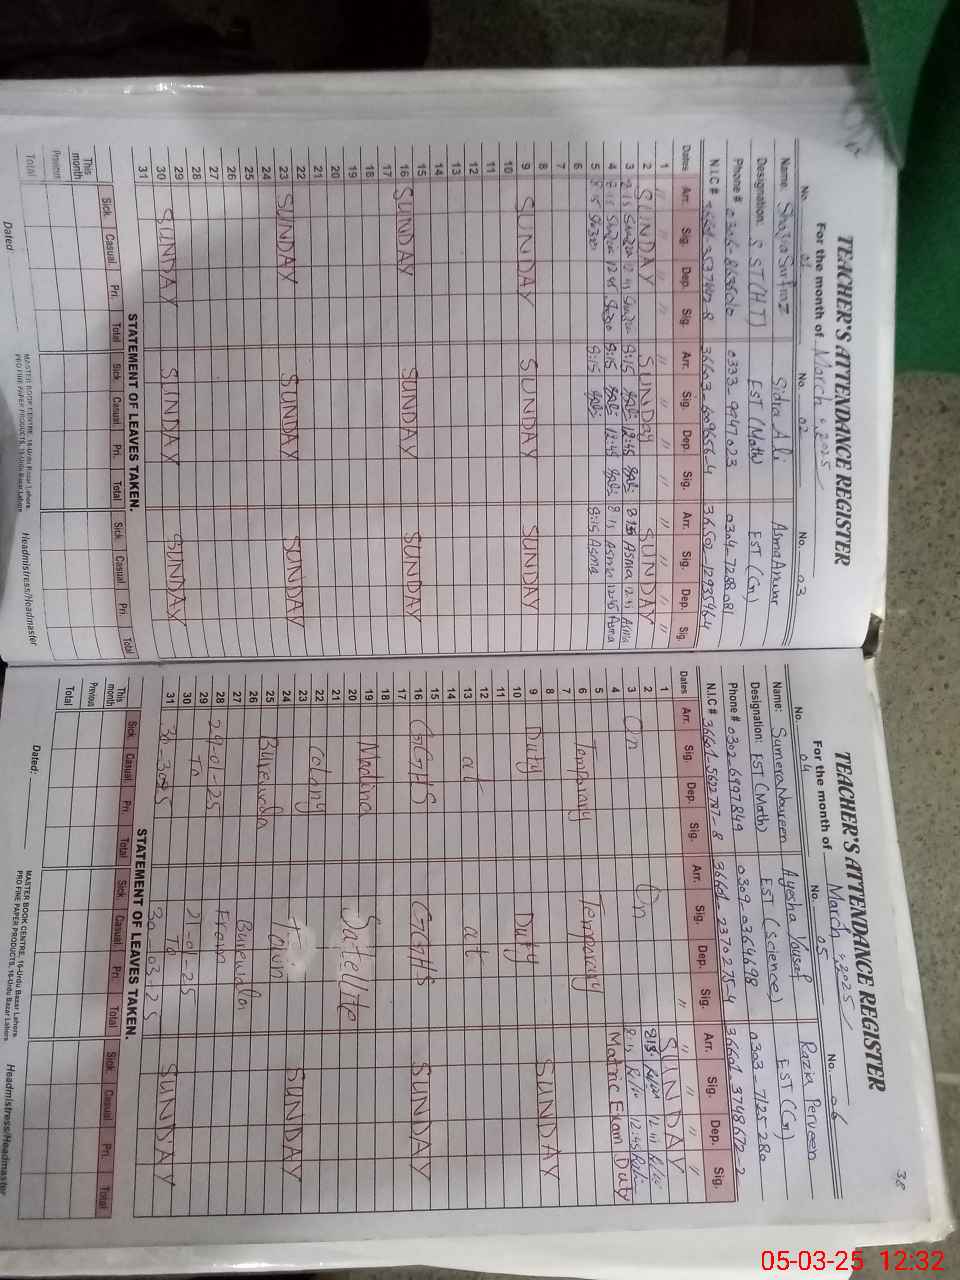 TEACHER'S ATTENDANCE REGISTER
For the month of March, 2025
No. 01 No. 02 No. 03
Name: Shazia Sarfraz Sidra Ali Asma Anwar
Designation: SST (H.T) EST (Math) EST (Gn)
Phone # 0333-9747023 0304-7288081
N.I.C #
Dates Arr. Sig. Dep. Sig. Arr. Sig. Dep. Sig. Arr. Sig. Dep. Sig.
1 " " " " " " " " " " "
2 SUNDAY SUNDAY SUNDAY
3 8:15 12:45 Asma Asma
4 8:15 12:45 8:15 12:45 8:15 Asma 12:45 Asma
5 8:15 8:15 8:15 Asma
6
7
8
9 SUNDAY SUNDAY SUNDAY
10
11
12
13
14
15
16 SUNDAY SUNDAY SUNDAY
17
18
19
20
21
22
23 SUNDAY SUNDAY SUNDAY
24
25
26
27
28
29
30 SUNDAY SUNDAY SUNDAY
31
STATEMENT OF LEAVES TAKEN.
Sick Casual Pri. Total Sick Casual Pri. Total Sick Casual Pri. Total
This month
Previous
Total
Dated
MASTER BOOK CENTRE, 16-Urdu Bazar Lahore.
PRO FINE PAPER PRODUCTS, 16-Urdu Bazar Lahore.
Headmistress/Headmaster
38
TEACHER'S ATTENDANCE REGISTER
For the month of March, 2025
No. 04 No. 05 No. 06
Name: Sumera Noureen Ayesha Yousaf Razia Perveen
Designation: EST (Math) EST (Science) EST (Gn)
Phone # 0302-6997849 0309-0364698 0303-7125280
N.I.C # 36601-5692787-8 36601-2370275-4 36601-3748672-2
Dates Arr. Sig. Dep. Sig. Arr. Sig. Dep. Sig. Arr. Sig. Dep. Sig.
1 " " " " "
2 On SUNDAY
3 On 8:15
4 8:15 12:45
5 Matric Exam Duty
6 Temporary Temporary
7
8
9 Duty Duty SUNDAY
10
11
12
13 at at
14
15
16 GGHS GGHS SUNDAY
17
18
19 Madina
20 Satellite
21
22 Colony
23 SUNDAY
24 Town
25 Burewala
26 Burewala
27
28 29-01-25 From
29 To 21-01-25
30 To SUNDAY
31 30-03-25
STATEMENT OF LEAVES TAKEN.
Sick Casual Pri. Total Sick Casual Pri. Total Sick Casual Pri. Total
This month
Previous
Total
Dated:
MASTER BOOK CENTRE, 16-Urdu Bazar Lahore.
PRO FINE PAPER PRODUCTS, 16-Urdu Bazar Lahore.
Headmistress/Headmaster
05-03-25 12:32